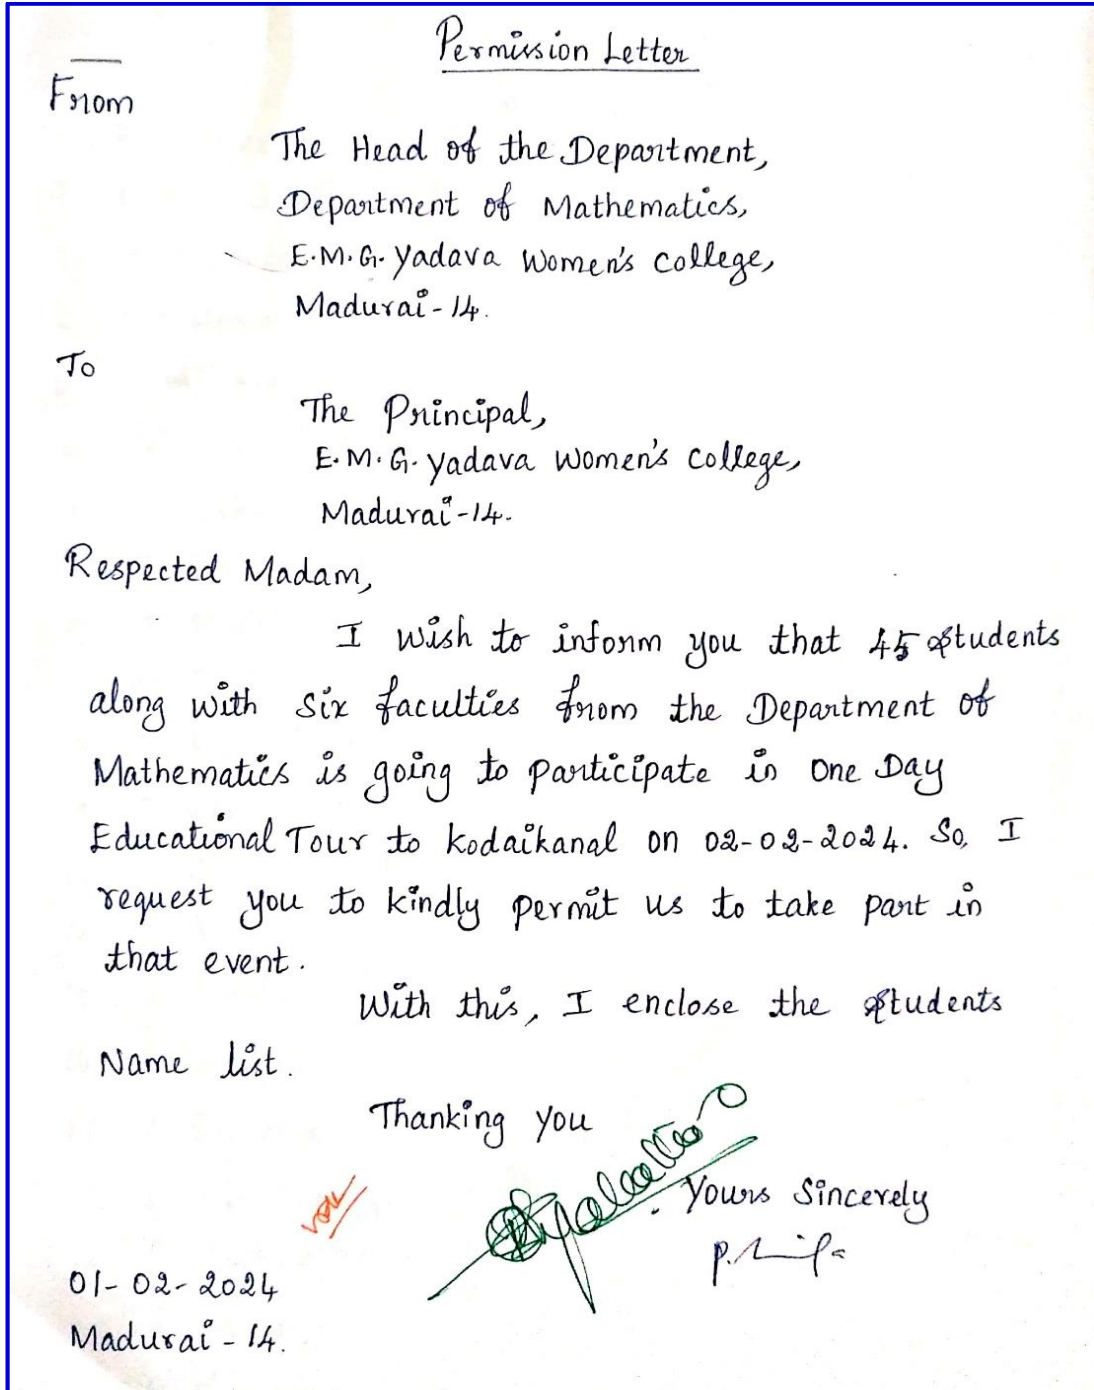 Permission Letter
From
The Head of the Department,
Department of Mathematics,
E.M.G. Yadava Women's college,
Madurai-14.
To
The Principal,
E.M.G. Yadava Women's college,
Madurai-14.
Respected Madam,
I wish to inform you that 45 students
along with six faculties from the Department of
Mathematics is going to participate in One Day
Educational Tour to Kodaikanal on 02-02-2024. So, I
request you to kindly permit us to take part in
that event.
With this, I enclose the students
Name list.
Thanking you
Yours Sincerely
01-02-2024
Madurai-14.